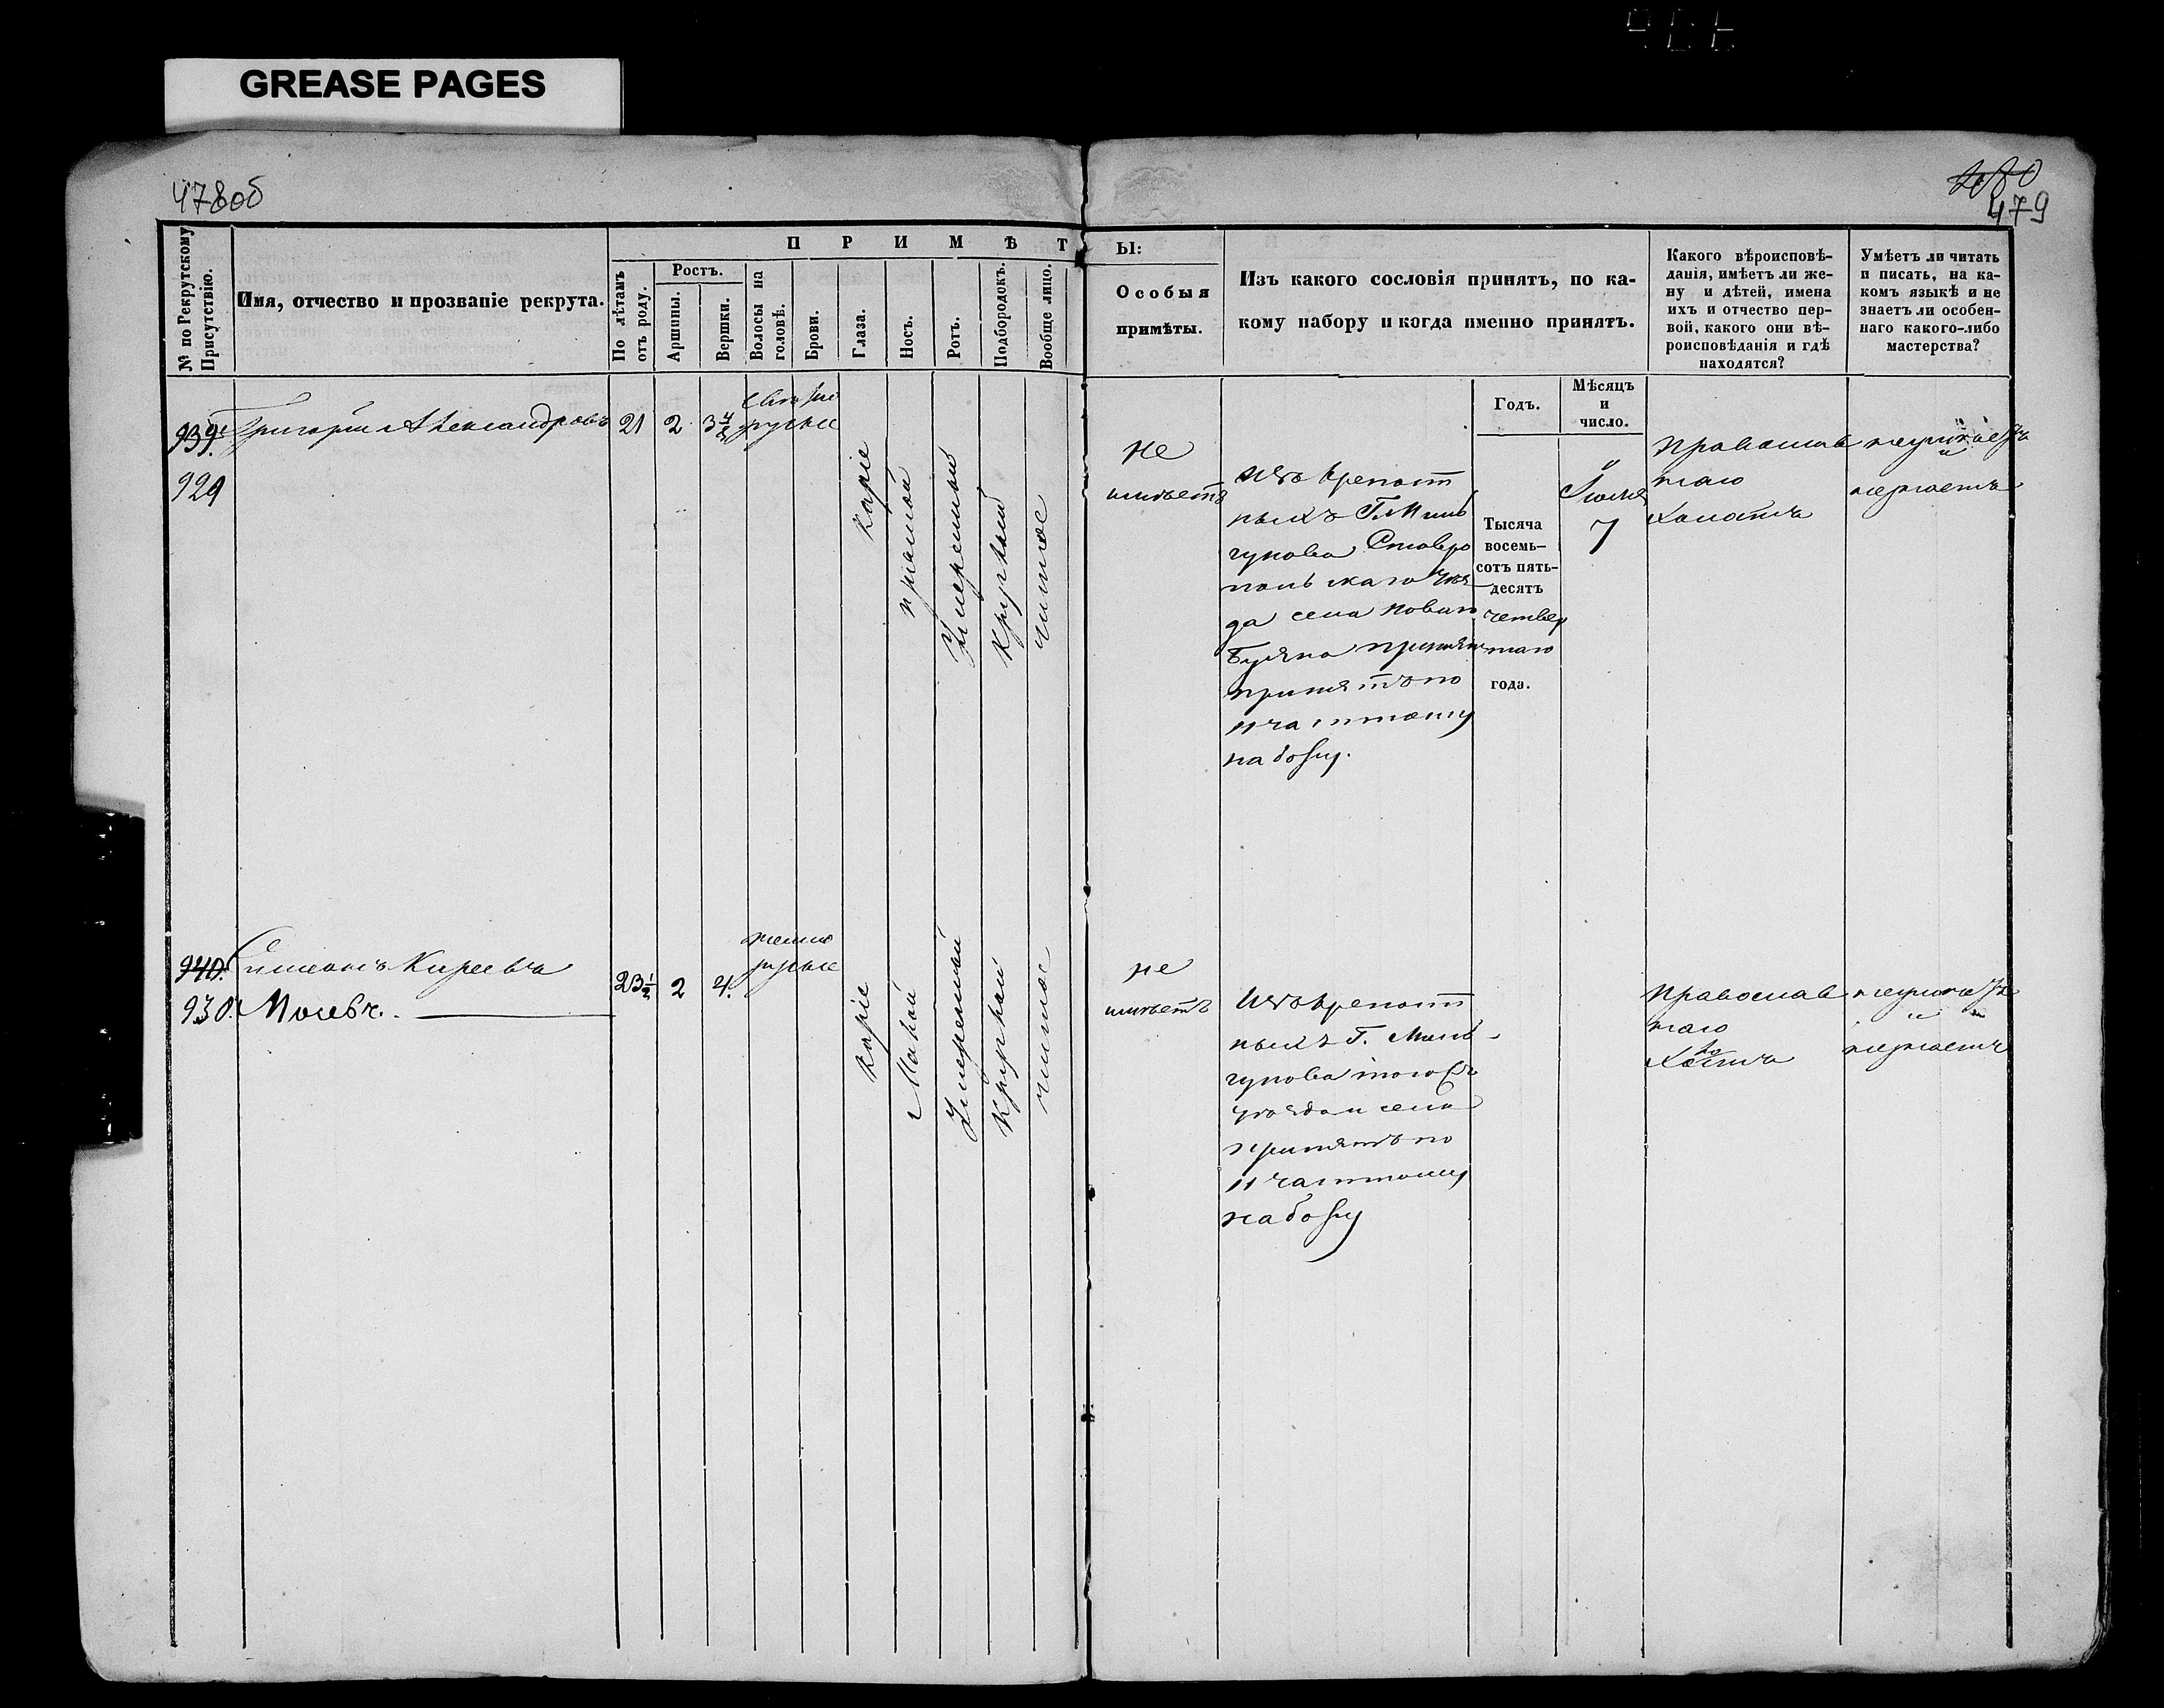 GREASE PAGES
478об
480
479
№ по Рекрутскому Присутствію.
Имя, отчество и прозваніе рекрута.
П Р И М Ѣ Т Ы:
По лѣтамъ отъ роду.
Ростъ.
Аршины.
Вершки.
Волосы на головѣ.
Брови.
Глаза.
Носъ.
Ротъ.
Подбородокъ.
Вообще лицо.
Особыя
примѣты.
Изъ какого сословія принятъ, по ка-
кому набору и когда именно принятъ.
Годъ.
Мѣсяцъ
и
число.
Какого вѣроисповѣ-
данія, имѣетъ ли же-
ну и дѣтей, имена
ихъ и отчество пер-
вой, какого они вѣ-
роисповѣданія и гдѣ
находятся?
Умѣетъ ли читать
и писать, на ка-
комъ языкѣ и не
знаетъ ли особен-
наго какого-либо
мастерства?
939.
929
Григорій Александровъ
21
2
3 4/8
свѣтло
русые
каріе
прямой
умеренный
круглый
чистое
не
имѣетъ
изъ крепост
ныхъ Г. Миль
гунова Ставро
польскаго уѣз
да села Новаго
Буяна
принятъ по
11 частному
набору.
Тысяча
восемь-
сотъ пять-
десятъ
четвер
таго
года.
Іюля
7
православ
наго
холостъ
неграмотѣ
и
незнаетъ
940.
930.
Симеонъ Киреевъ
23½
2
4.
темно
русые
каріе
Малой
умеренный
круглый
чистое
не
имѣетъ
Изъ крепост
ныхъ Г. Миль
гунова того жъ
уѣзда и села
принятъ по
11 частному
набору
Православ
наго
Холостъ
и
незнаетъ